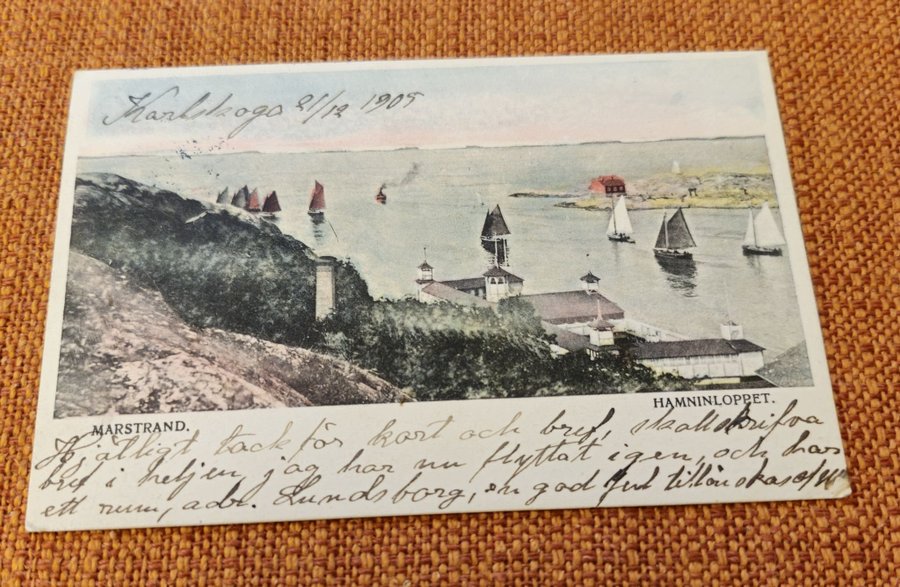 Karlskoga 21/12 1905
MARSTRAND.
HAMNINLOPPET.
Hjätligt tack för kort och bref, skall skrifva
bref i heljen, jag har nu flyttat igen, och har
ett rum, adr. Lundsborg, en god Jul tillönskas